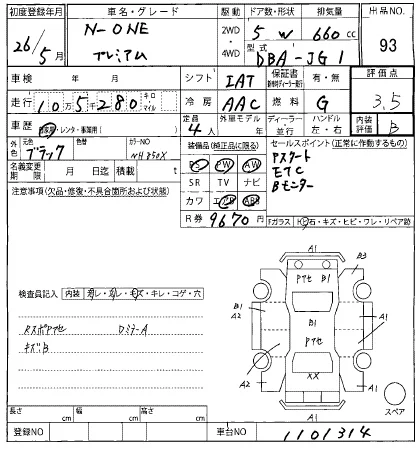 初度登録年月 車名・グレード 駆動 ドア数・形状 排気量 出品NO.
26/5月 N-ONE プレミアム 2WD・4WD 5 W 660cc 93
型式 DBA-JG1
車検 年 月 シフト IAT 保証書 有・無 評価点
走行 10万5千280 キロ マイル 冷房 AAC 燃料 G 3.5
車歴 自家用・レンタ・事業用( ) 定員 4人 外車モデル 年 ディーラー・並行 ハンドル 左・右 内装評価 B
外色 元色 ブラック 色替 カラーNO NH
名義変更期限 月 日迄 積載 t
装備品(純正品に限る) セールスポイント(正常に作動するもの)
PS PW AW Pスタート
SR TV ナビ ETC
カワ エアB ABS Bモニター
R券 9670円
Fガラス 石・キズ・ヒビ・ワレ・リペア跡
注意事項(欠品・修復・不具合箇所および状態)
検査員記入 内装 ・キズ・キレ・コゲ・穴
DミラーA
キズB
A1
Pアセ B1
B3
B1
A2
B1
Pアセ
B1
A1
A2
XX
A1
A1
A1
スペア
長さ cm 幅 cm 高さ cm
登録NO 車台NO 1101314